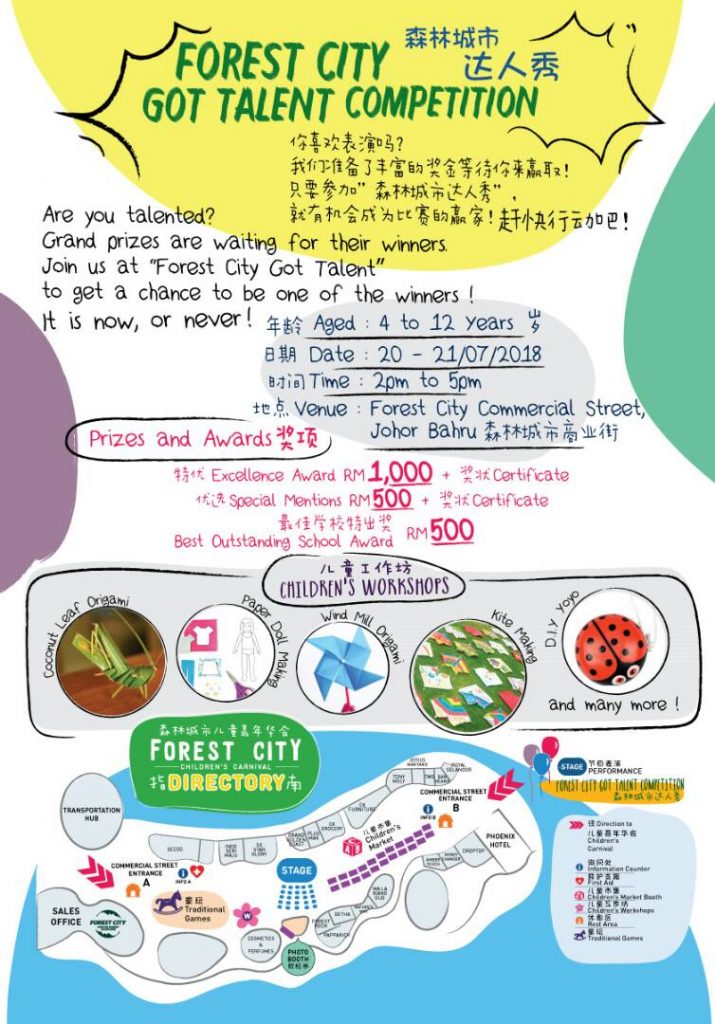 FOREST CITY 森林城市
达人秀
GOT TALENT COMPETITION
你喜欢表演吗?
我们准备了丰富的奖金等待你来赢取!
只要参加"森林城市达人秀",
就有机会成为比赛的赢家!赶快行动吧!
Are you talented?
Grand prizes are waiting for their winners.
Join us at "Forest City Got Talent"
to get a chance to be one of the winners !
It is now, or never!
年龄 Aged : 4 to 12 years 岁
日期 Date : 20 - 21/07/2018
时间 Time : 2pm to 5pm
地点 Venue : Forest City Commercial Street,
Johor Bahru 森林城市商业街
Prizes and Awards 奖项
特优 Excellence Award RM 1,000 + 奖状 Certificate
优选 Special Mentions RM 500 + 奖状 Certificate
最佳学校特出奖
Best Outstanding School Award RM 500
儿童工作坊
CHILDREN'S WORKSHOPS
Coconut Leaf Origami
Paper Doll Making
Wind Mill Origami
Kite Making
D.I.Y Yoyo
and many more !
森林城市儿童嘉年华会
FOREST CITY
CHILDREN'S CARNIVAL
指DIRECTORY南
STAGE 节目表演
PERFORMANCE
FOREST CITY GOT TALENT COMPETITION
森林城市达人秀
TRANSPORTATION
HUB
COMMERCIAL STREET
ENTRANCE
A
INFO A
COMMERCIAL STREET
ENTRANCE
B
INFO B
ROYAL
SELANGOR
TONY
MOLY
CK
FURNITURE
CK
GROCERY
PLUS
MAX
SG
STAR
GLORY
SECOO
儿童市集
Children's
Market
PHOENIX
HOTEL
MONEY
CHANGER
DROPTOP
STAGE
童玩
Traditional
Games
W
SALES
OFFICE
FOREST CITY
COSMETICS
& PERFUMES
PHOTO
BOOTH
PAPPARICH
GETHA
FOREST
BOOK
往Direction to
儿童嘉年华会
Children's
Carnival
询问处
Information Counter
救护支援
First Aid
儿童市集
Children's Market Booth
儿童工作坊
Children's Workshops
休憩区
Rest Area
童玩
Traditional Games